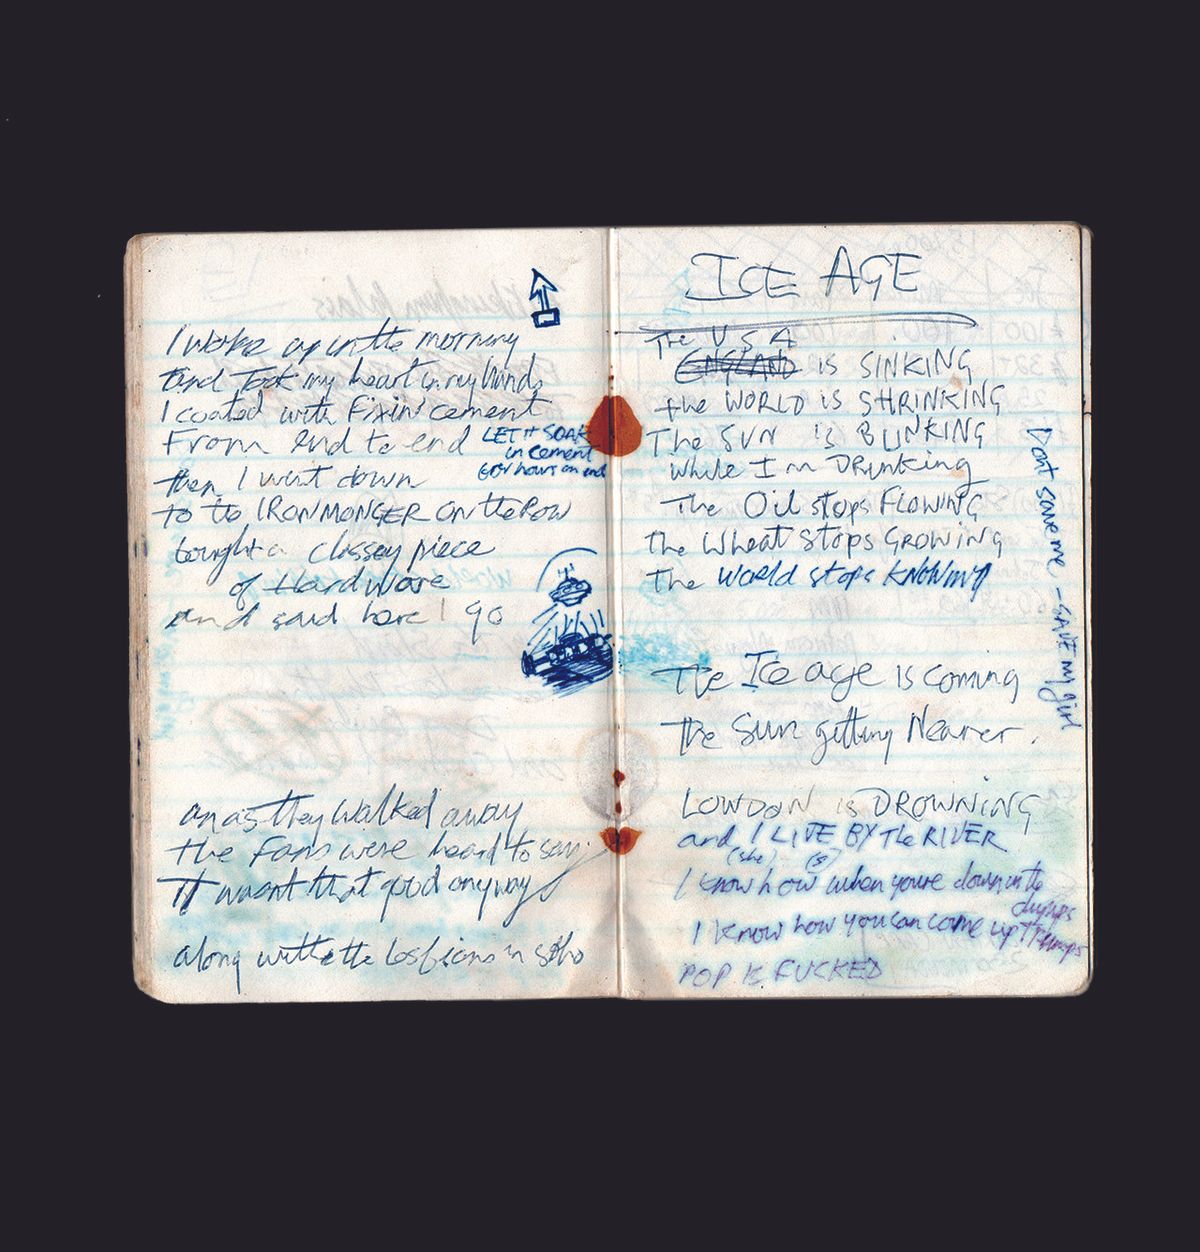 I woke up in the morning
and Took my heart in my hands
I coated with Fixin' cement
From end to end
LET IT SOAK
in cement
for hours on end
then I went down
to the IRONMONGER ON the ROW
bought a classey piece
of Hardware
and said here I go
an as they walked away
the Fans were heard to say
It wasnt that good anyway
along with the lesbians in soho
ICE AGE
The USA
ENGLAND IS SINKING
the WORLD IS SHRINKING
The SUN IS BLINKING
while I'm DRinking
The Oil stops FLOWING
the Wheat stops GROWING
the World stops KNOWING
The Ice age is coming
the Sun getting Nearer.
LONDON is DROWNING
and I LIVE BY the RIVER
(she) (s)
I know how when youre down in the
dumps
I know how you can come up Trumps
POP IS FUCKED
Dont save me - SAVE my girl